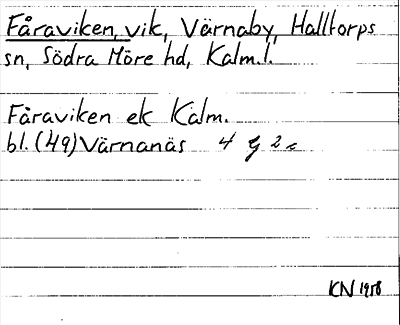 Fåraviken, vik, Värnaby, Halltorps
sn, Södra Möre hd, Kalm.l.
Fåraviken ek Kalm.
bl.(49) Värnanäs 4 G 2 c
KN 1958